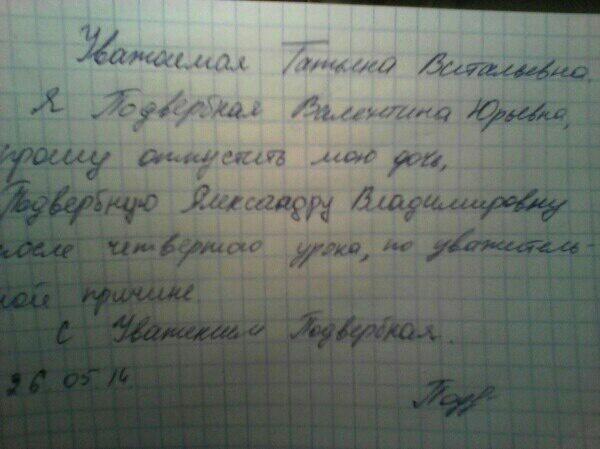 Уважаемая Татьяна Витальевна.
Я Подвербная Валентина Юрьевна,
прошу отпустить мою дочь,
Подвербную Александру Владимировну
после четвертого урока, по уважитель-
ной причине.
С Уважением Подвербная.
26 05 14
Подв